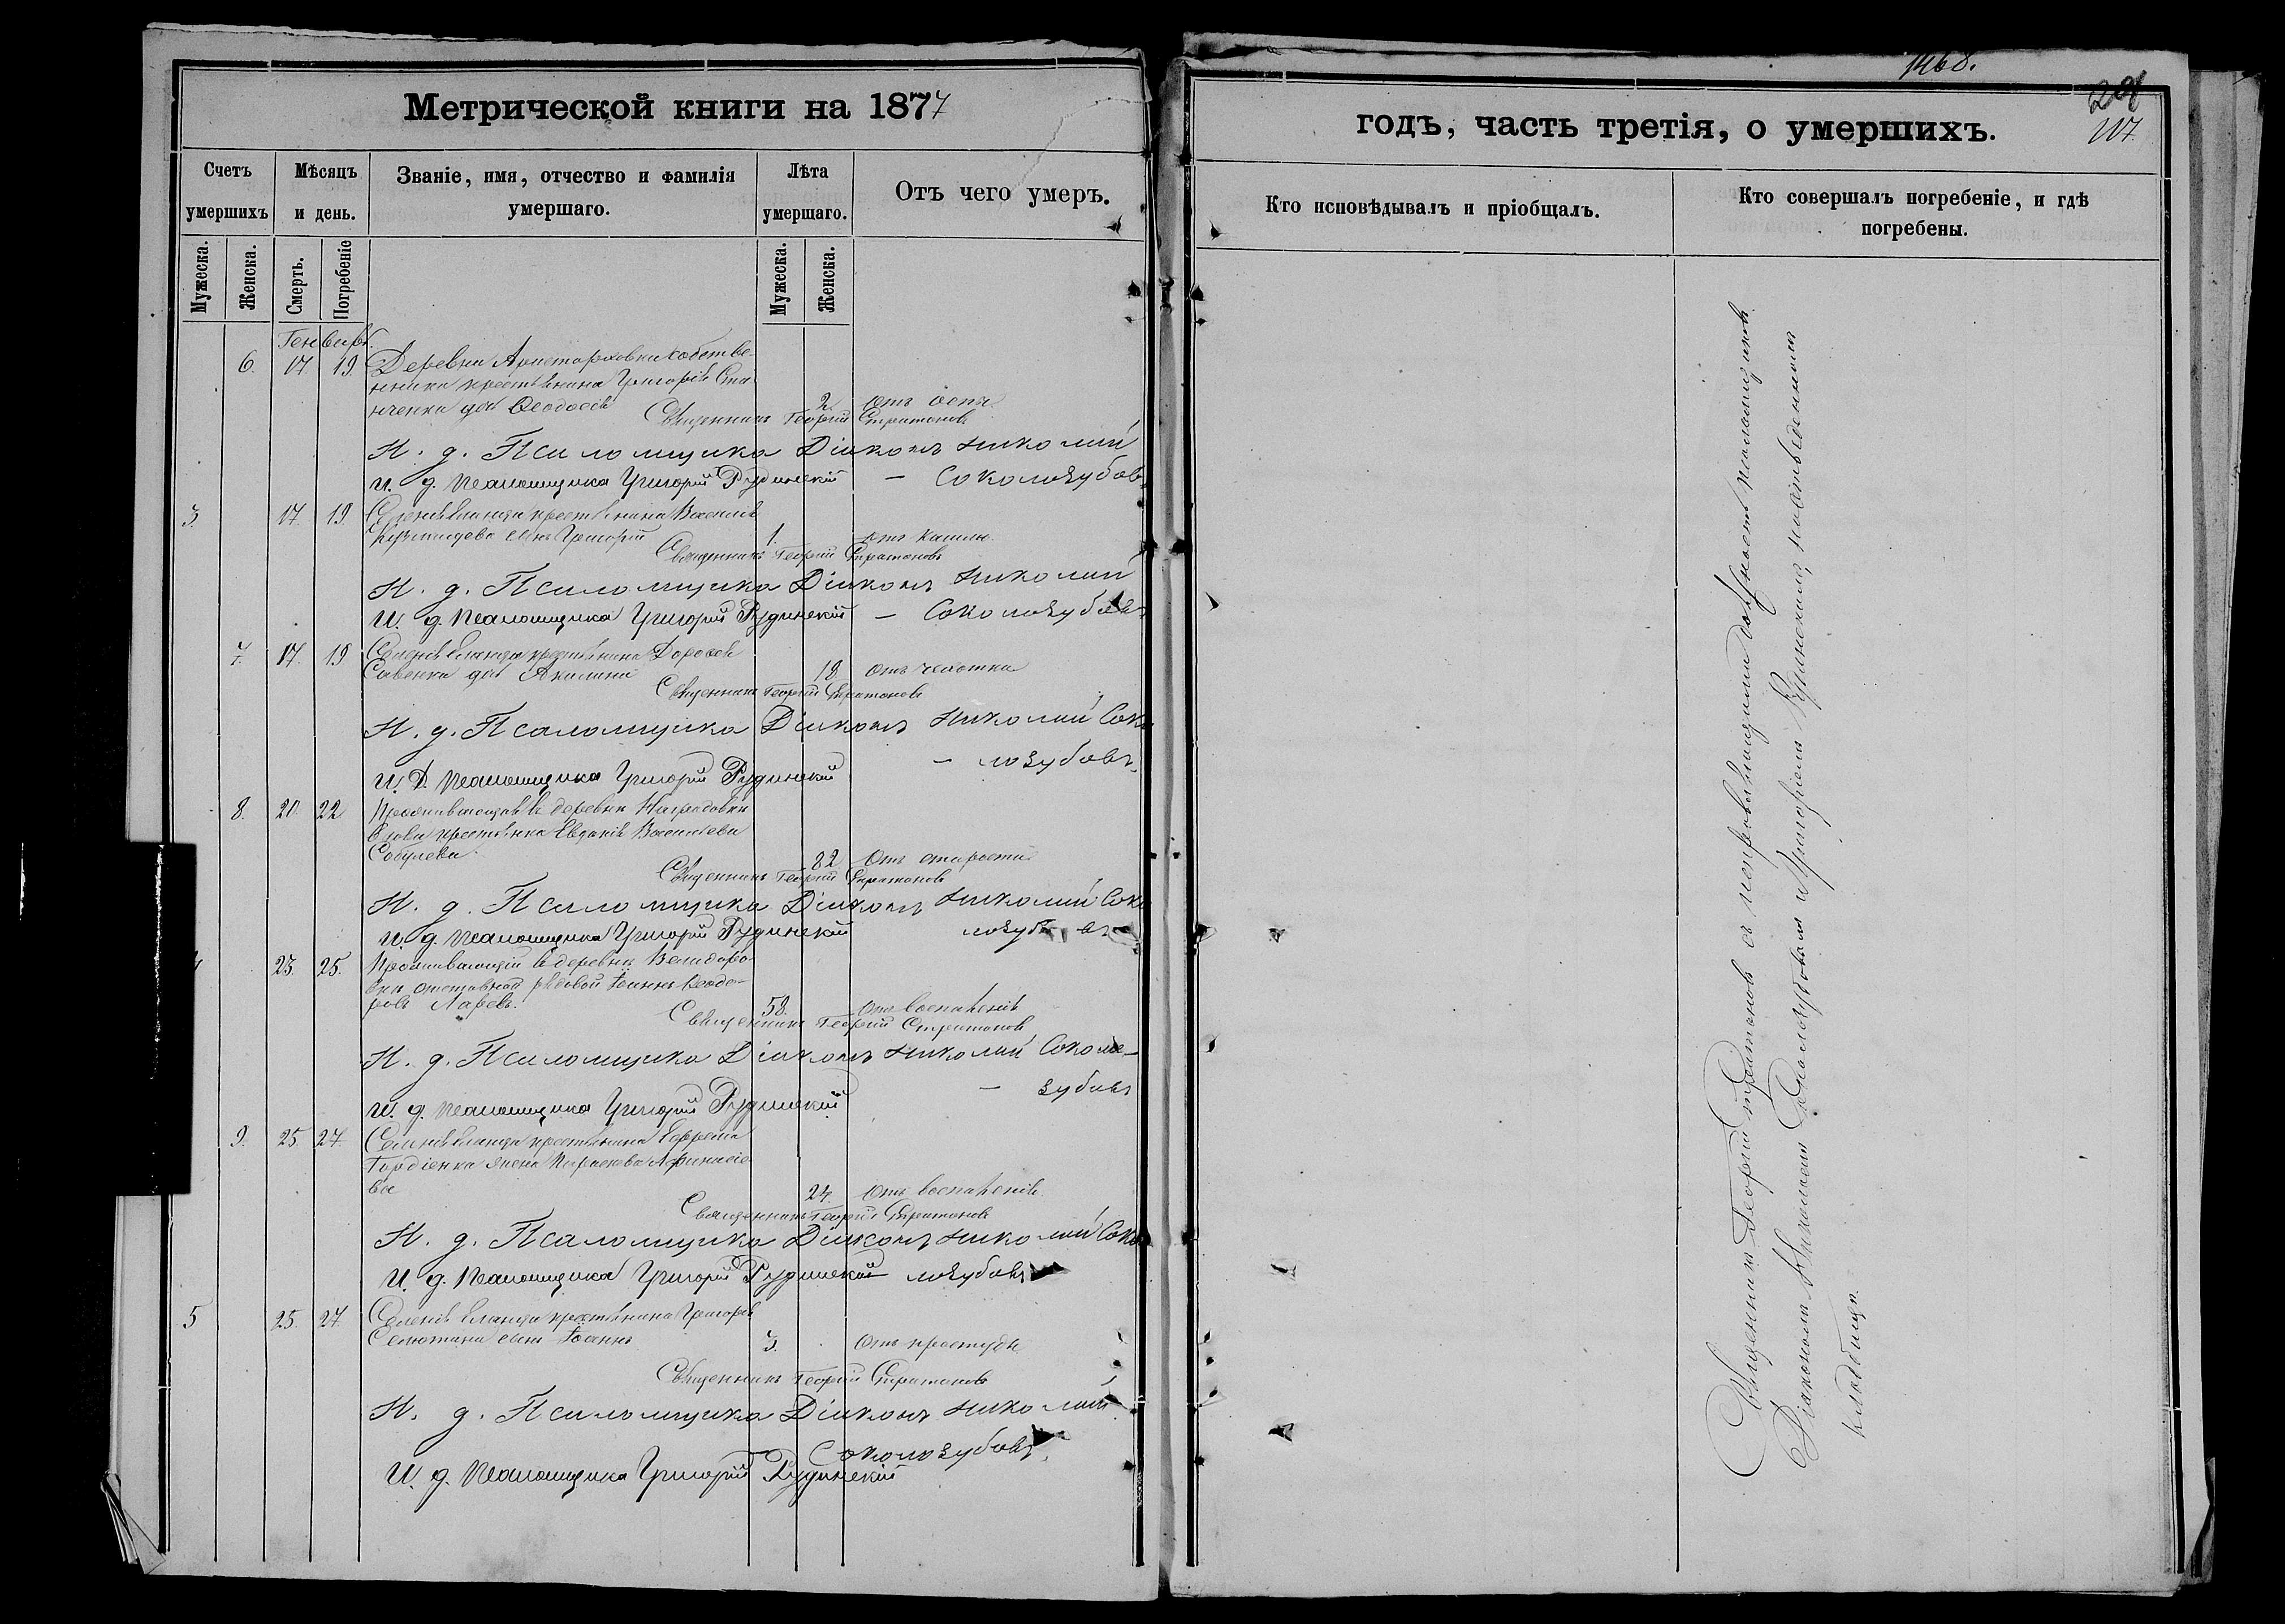 Метрической книги на 1877
Счетъ умершихъ
Мѣсяцъ и день.
Званіе, имя, отчество и фамилія умершаго.
Лѣта умершаго.
Отъ чего умеръ.
Мужеска.
Женска.
Смерть.
Погребеніе
Мужеска.
Женска.
Генварь.
6. 17 19 Деревни Аристарховки собстве-
нника крестьянина Григорія
дчь Ѳеодосія 2 отъ оспы
Священникъ Георгій Стратоновъ
И. д. Псаломщика Діаконъ Николай
и. д. Псаломщика Григорій Рудинскій — Соколозубовъ
3. 17 19 крестьянина Василія
сынъ Григорій 1. отъ кашля
Священникъ Георгій Стратоновъ
И. д. Псаломщика Діаконъ Николай
И. д. Псаломщика Григорій Рудинскій — Соколозубовъ
7. 17. 19 крестьянина Дороѳея
Савенка дчь Акилина 18 отъ чахотки
Священникъ Георгій Стратоновъ
И. д. Псаломщика Діаконъ Николай Соко
— лозубовъ.
И. Д. Псаломщика Григорій Рудинскій
8. 20. 22 Проживающая въ деревни
вдова крестьянка Евдокія Васильева
82 Отъ старости
Священникъ Георгій Стратоновъ
И. д. Псаломщика Діаконъ Николай Соко
и. д. Псаломщика Григорій Рудинскій лозубовъ
23. 25. Проживающій въ деревни
отставной рядовой Іоаннъ Ѳеодо-
ровъ Ларевъ. 58. Отъ воспаленія
Священникъ Георгій Стратоновъ
И. д. Псаломщика Діаконъ Николай Соколо-
— зубовъ
И. д. Псаломщика Григорій Рудинскій
9. 25. 27. крестьянина Ефрема
Гордіенка жена Параскева Афанасіе-
ва 24. Отъ воспаленія
Священникъ Георгій Стратоновъ
И. д. Псаломщика Діаконъ Николай Соко
И. д. Псаломщика Григорій Рудинскій — лозубовъ
5 25. 27. крестьянина Григорія
сынъ Іоаннъ 3. Отъ простуды
Священникъ Георгій Стратоновъ
И. д. Псаломщика Діаконъ Николай
Соколозубовъ.
И. д. Псаломщика Григорій Рудинскій
годъ, часть третія, о умершихъ.
117
Кто исповѣдывалъ и пріобщалъ.
Кто совершалъ погребеніе, и гдѣ погребены.
Священникъ Георгій Стратоновъ съ исправляющими должность псаломщиковъ
Діакономъ Николаемъ Соколозубовымъ и Григоріемъ Рудинскимъ, на отведенномъ
кладбищѣ.